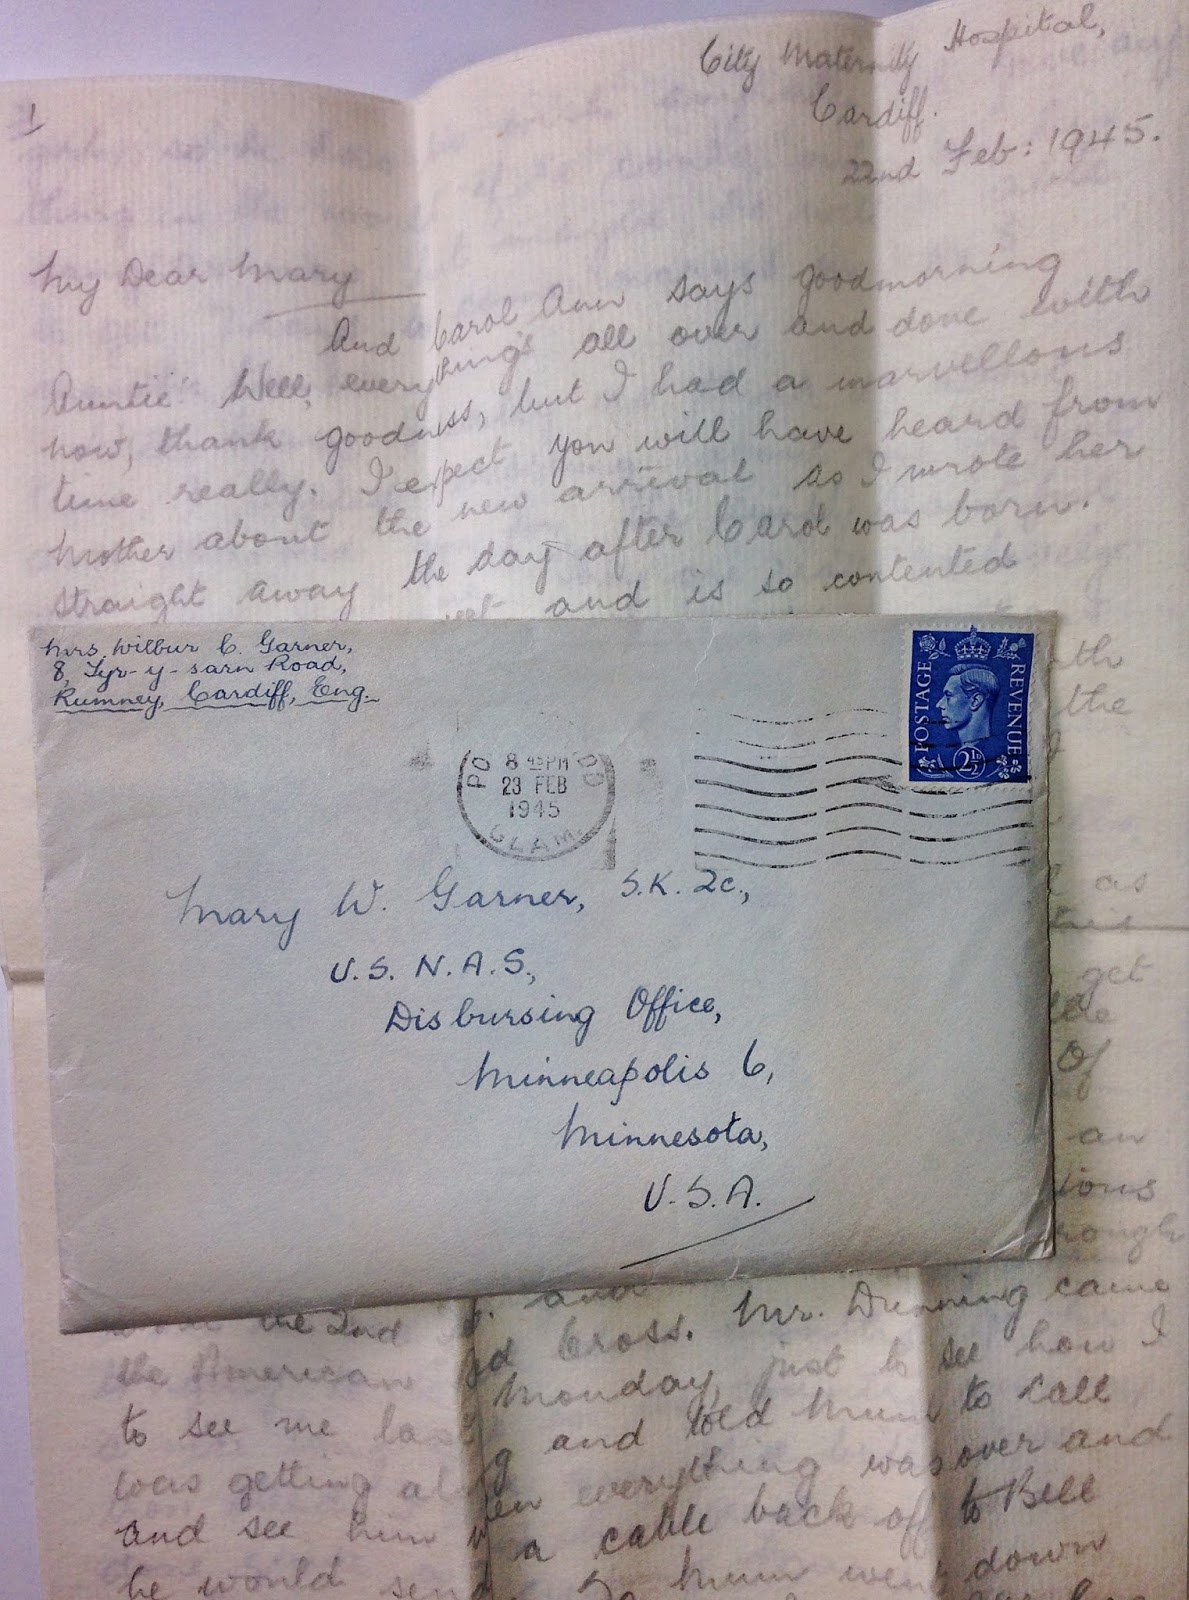 1
City Maternity Hospital,
Cardiff.
22nd Feb: 1945.
My Dear Mary
And Carol Ann says goodmorning
Auntie! Well, everything's all over and done with
now, thank goodness, but I had a marvellous
time really. I expect you will have heard from
Mother about the new arrival as I wrote her
straight away the day after Carol was born.
and is so contented
the
as
get
Of
an
Mrs. Wilbur C. Garner,
8, Tyr-y-sarn Road,
Rumney, Cardiff, Eng.
POSTAGE REVENUE
2½
8 45 PM
23 FEB
1945
GLAM.
Mary W. Garner, S.K. 2c.,
U.S. N.A.S.,
Disbursing Office,
Minneapolis 6,
Minnesota,
U.S.A.
and
the 2nd
the American Cross. Mr. Dunning came
to see me last Monday, just to see how I
was getting along and told Mum to call
and see him when everything was over and
he would send a cable back off to Bill
So Mum went down